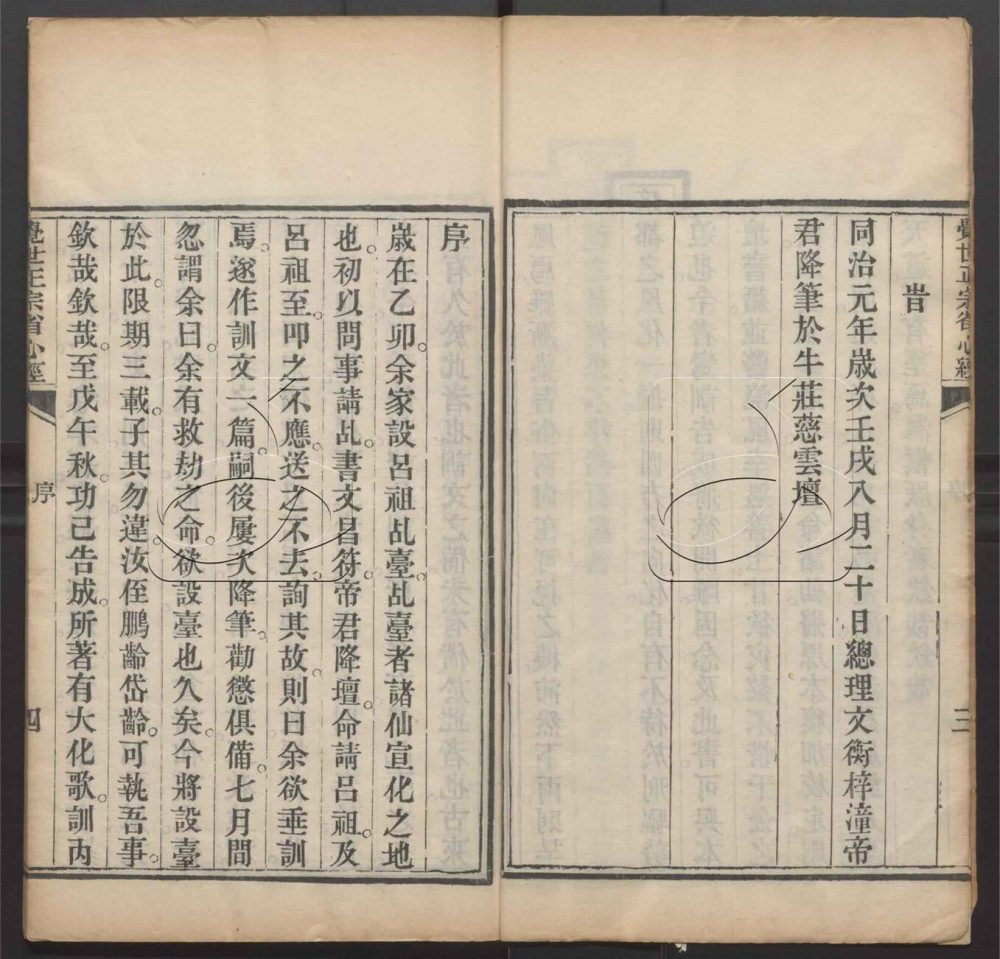 覺世正宗省心經
三
旹
同治元年歲次壬戌八月二十日總理文衡梓潼帝
君降筆於牛莊慈雲壇
序
歲在乙卯。余家設呂祖乩臺。乩臺者諸仙宣化之地
也。初以問事請乩。書文昌符。帝君降壇。命請呂祖。及
呂祖至。叩之不應。送之不去。詢其故。則曰余欲垂訓
焉。遂作訓文一篇。嗣後屢次降筆。勸懲俱備。七月間
忽謂余曰。余有救劫之命。欲設臺也久矣。今將設臺
於此。限期三載。子其勿違。汝侄鵬齡岱齡。可執吾事。
欽哉欽哉。至戊午秋。功已告成。所著有大化歌。訓內
覺世正宗省心經
序
四